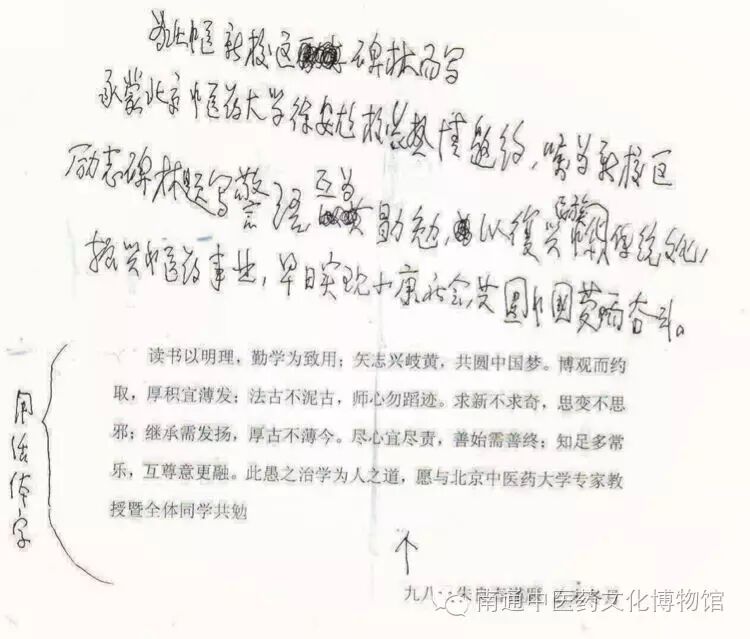 为北中医新校区碑林而写
承蒙北京中医药大学徐安龙校长热情邀约，嘱为新校区
励志碑林题写警语，互为勖勉，以復兴中国传统文化，
振兴中医药事业，早日实现小康社会，共圆中国梦而奋斗。
读书以明理，勤学为致用；矢志兴岐黄，共圆中国梦。博观而约
取，厚积宜薄发；法古不泥古，师心勿蹈迹。求新不求奇，思变不思
邪；继承需发扬，厚古不薄今。尽心宜尽责，善始需善终；知足多常
乐，互尊意更融。此愚之治学为人之道，愿与北京中医药大学专家教
授暨全体同学共勉
用活体字
个
九八
南通中医药文化博物馆